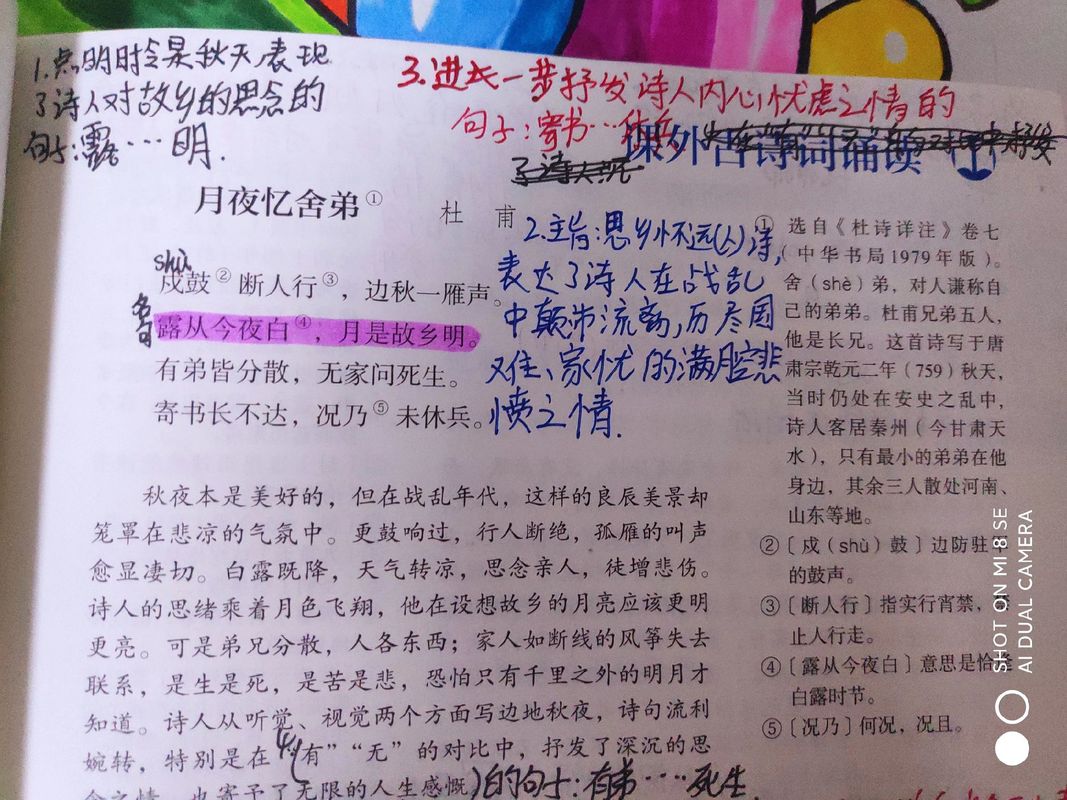 1.点明时令是秋天,表现
了诗人对故乡的思念的
句子:露…明.
3.进一步抒发诗人内心忧虑之情的
句子:寄书…休兵
课外古诗词诵读
月夜忆舍弟①
杜 甫
shù
戍鼓②断人行③，边秋一雁声。
名句
露从今夜白④，月是故乡明。
有弟皆分散，无家问死生。
寄书长不达，况乃⑤未休兵。
2.主旨:思乡怀远(人)诗,
表达了诗人在战乱
中颠沛流离,历尽国
难、家忧的满腔悲
愤之情.
秋夜本是美好的，但在战乱年代，这样的良辰美景却
笼罩在悲凉的气氛中。更鼓响过，行人断绝，孤雁的叫声
愈显凄切。白露既降，天气转凉，思念亲人，徒增悲伤。
诗人的思绪乘着月色飞翔，他在设想故乡的月亮应该更明
更亮。可是弟兄分散，人各东西；家人如断线的风筝失去
联系，是生是死，是苦是悲，恐怕只有千里之外的明月才
知道。诗人从听觉、视觉两个方面写边地秋夜，诗句流利
婉转，特别是在“有”“无”的对比中，抒发了深沉的思
念之情，也寄予了无限的人生感慨
4.
)的句子:有弟…死生.
① 选自《杜诗详注》卷七
（中华书局1979年版）。
舍（shè）弟，对人谦称自
己的弟弟。杜甫兄弟五人，
他是长兄。这首诗写于唐
肃宗乾元二年（759）秋天，
当时仍处在安史之乱中，
诗人客居秦州（今甘肃天
水），只有最小的弟弟在他
身边，其余三人散处河南、
山东等地。
②〔戍（shù）鼓〕边防驻军
的鼓声。
③〔断人行〕指实行宵禁，禁
止人行走。
④〔露从今夜白〕意思是恰逢
白露时节。
⑤〔况乃〕何况，况且。
SHOT ON MI 8 SE
AI DUAL CAMERA